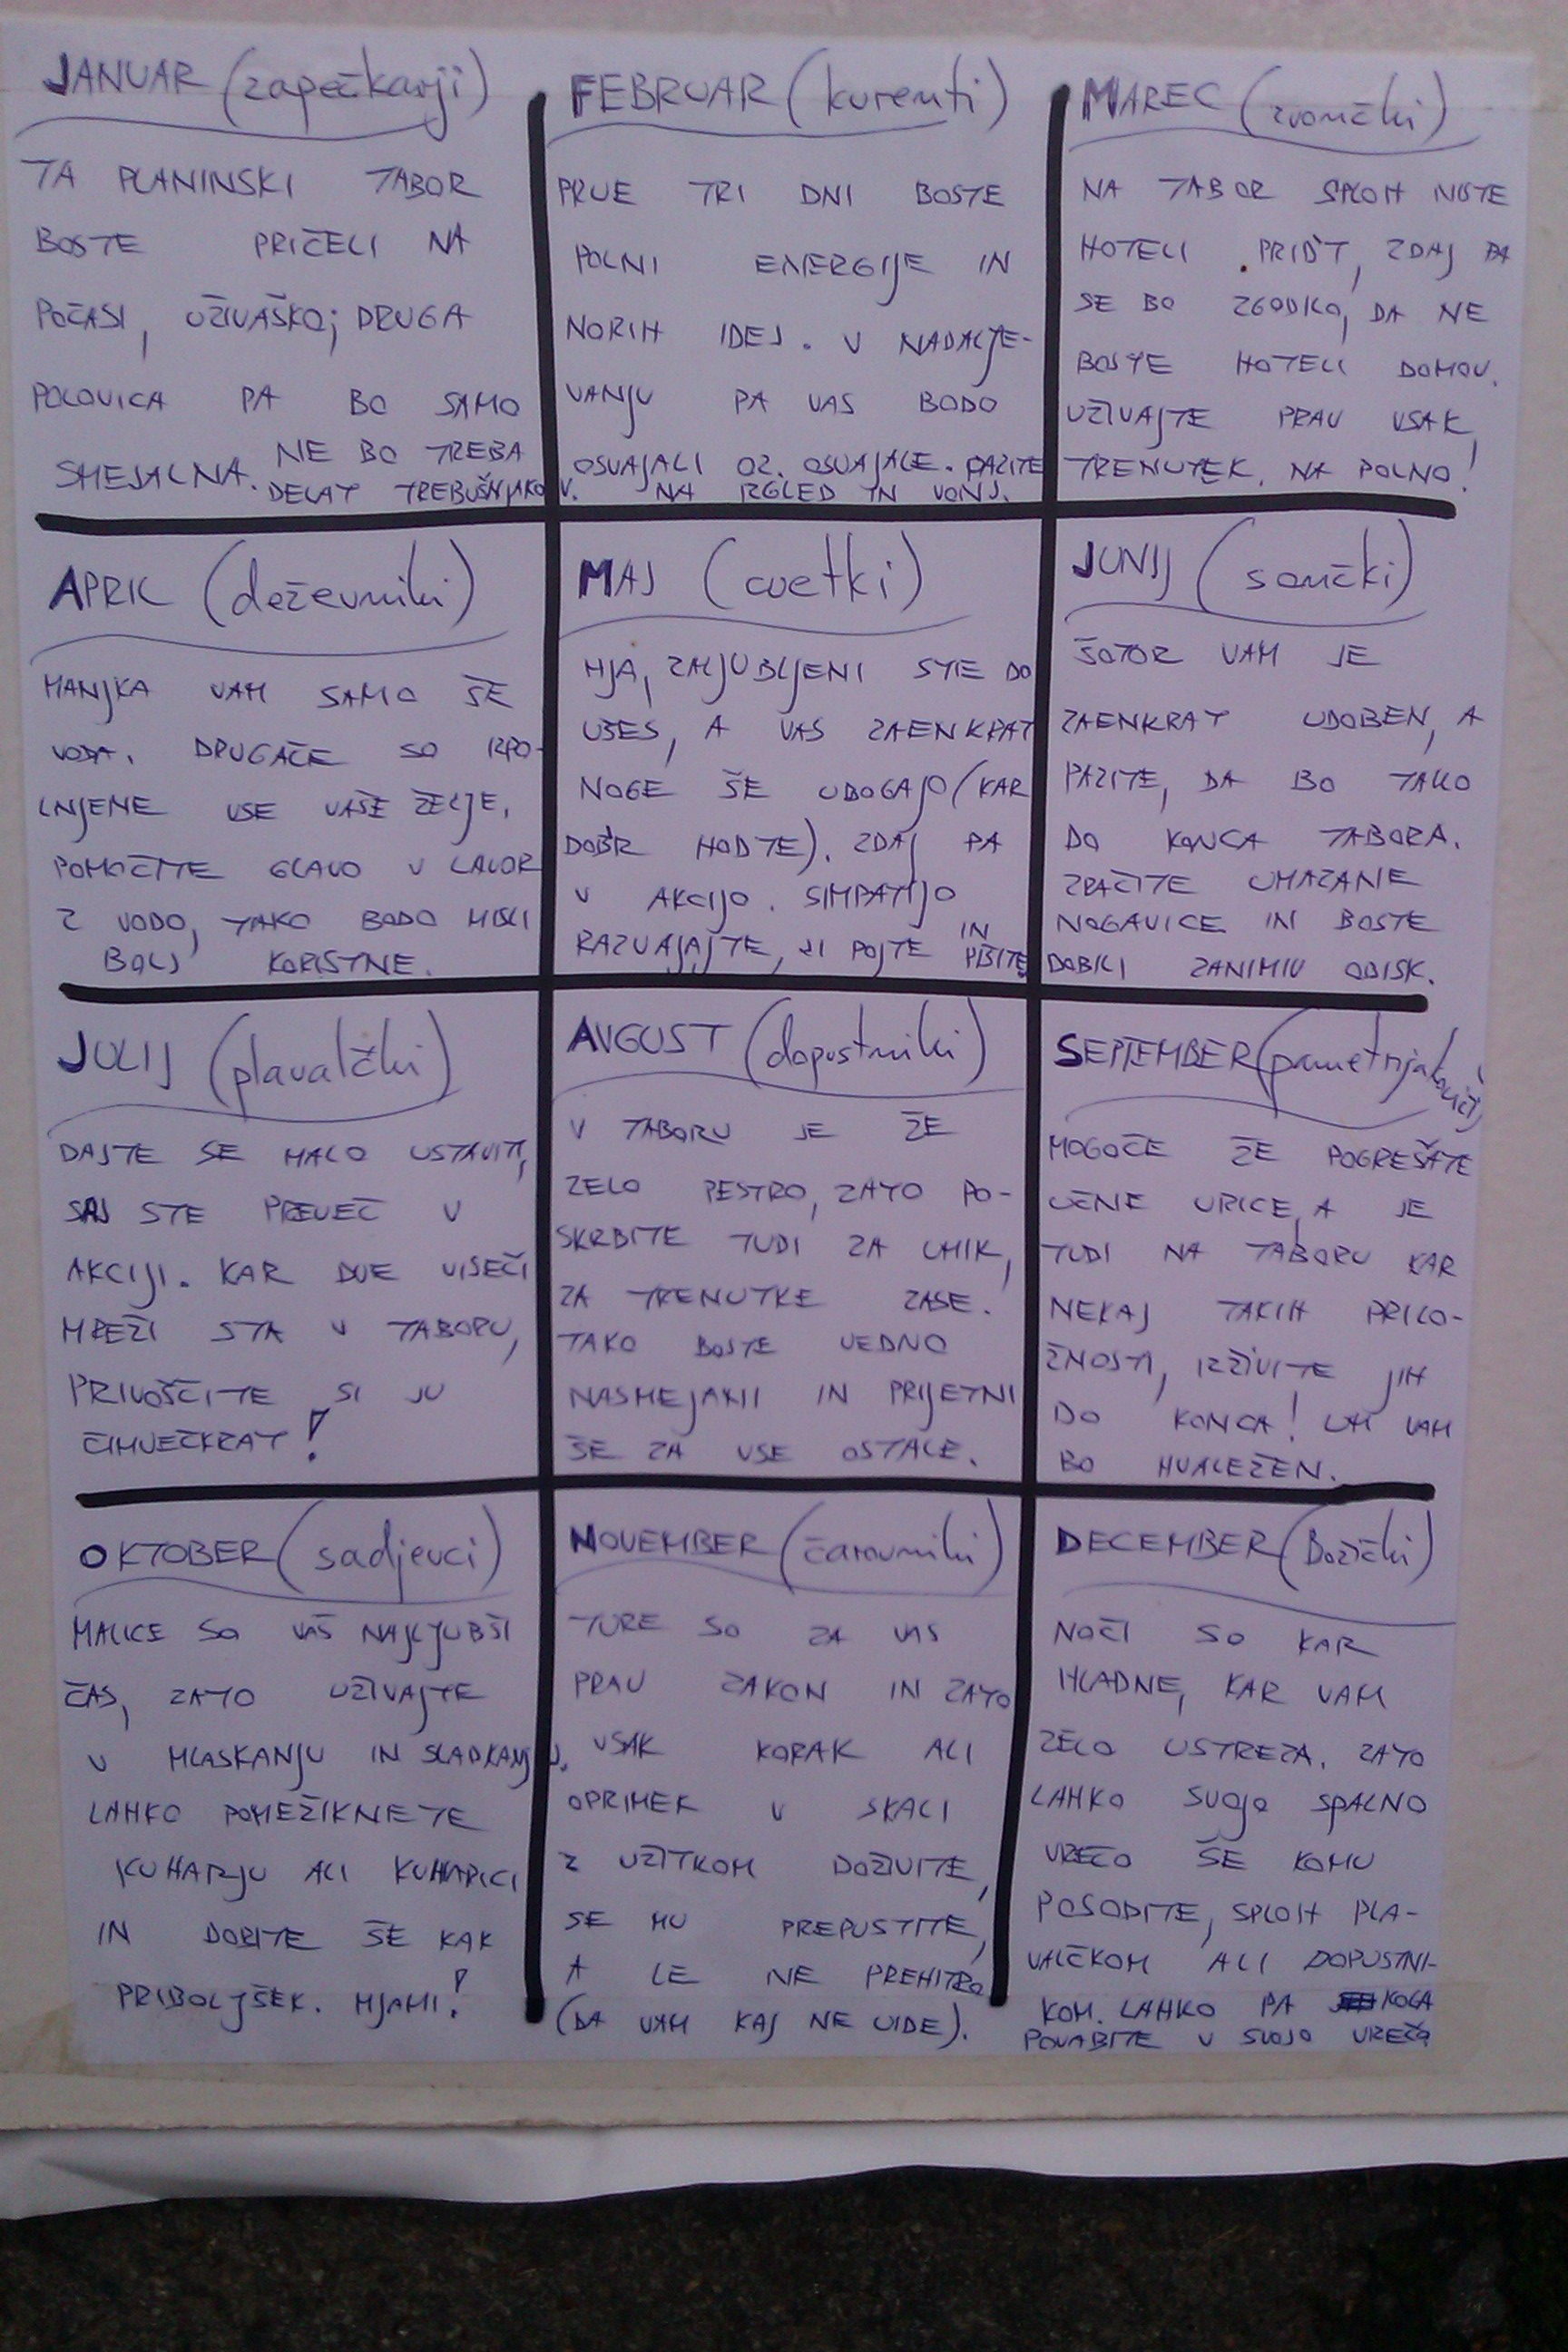 JANUAR (zapečkarji)
TA PLANINSKI TABOR
BOSTE PRIČELI NA
POČASI, UŽIVAŠKO; DRUGA
POLOVICA PA BO SAMO
SMEJALNA. NE BO TREBA
DELAT TREBUŠNJAKOV.
FEBRUAR (kurenti)
PRVE TRI DNI BOSTE
POLNI ENERGIJE IN
NORIH IDEJ. V NADALJE-
VANJU PA VAS BODO
OSVAJALI OZ. OSVAJALE. PAZITE
NA IZGLED IN VONJ.
MAREC (zvončki)
NA TABOR SPLOH NISTE
HOTELI PRIDT, ZDAJ PA
SE BO ZGODILO, DA NE
BOSTE HOTELI DOMOV.
UŽIVAJTE PRAV VSAK
TRENUTEK, NA POLNO!
APRIL (deževniki)
MANJKA VAM SAMO ŠE
VODA. DRUGAČE SO IZPO-
LNJENE VSE VAŠE ŽELJE.
POMOČITE GLAVO V LAVOR
Z VODO, TAKO BODO MISLI
BOLJ KORISTNE.
MAJ (cvetki)
MJA, ZALJUBLJENI STE DO
UŠES, A VAS ZAENKRAT
NOGE ŠE UBOGAJO (KAR
DOBR HODTE). ZDAJ PA
V AKCIJO. SIMPATIJO
RAZVAJAJTE, JI POJTE IN PIŠITE
JUNIJ (sončki)
ŠOTOR VAM JE
ZAENKRAT UDOBEN, A
PAZITE, DA BO TAKO
DO KONCA TABORA.
ZRAČITE UMAZANE
NOGAVICE IN BOSTE
DOBILI ZANIMIV OBISK.
JULIJ (plavalčki)
DAJTE SE MALO USTAVITI,
SAJ STE PREVEČ V
AKCIJI. KAR DVE VISEČI
MREŽI STA V TABORU,
PRIVOŠČITE SI JU
ČIMVEČKRAT!
AVGUST (dopustniki)
V TABORU JE ŽE
ZELO PESTRO, ZATO PO-
SKRBITE TUDI ZA UMIK,
ZA TRENUTKE ZASE.
TAKO BOSTE VEDNO
NASMEJANI IN PRIJETNI
ŠE ZA VSE OSTALE.
SEPTEMBER (pametnjakoviči)
MOGOČE ŽE POGREŠATE
UČNE URICE, A JE
TUDI NA TABORU KAR
NEKAJ TAKIH PRILO-
ŽNOSTI, IZŽIVITE JIH
DO KONCA! UM VAM
BO HVALEŽEN.
OKTOBER (sadjevci)
MALICE SO VAŠ NAJLJUBŠI
ČAS, ZATO UŽIVAJTE
V MLASKANJU IN SLADKANJU.
LAHKO POMEŽIKNETE
KUHARJU ALI KUHARICI
IN DOBITE ŠE KAK
PRIBOLJŠEK. MJAMI!
NOVEMBER (čarovniki)
TURE SO ZA VAS
PRAV ZAKON IN ZATO
VSAK KORAK ALI
OPRIMEK V SKALI
Z UŽITKOM DOŽIVITE,
SE MU PREPUSTITE,
A LE NE PREHITRO
(DA VAM KAJ NE UIDE).
DECEMBER (Božički)
NOČI SO KAR
HLADNE, KAR VAM
ZELO USTREZA. ZATO
LAHKO SVOJO SPALNO
VREČO ŠE KOMU
POSODITE, SPLOH PLA-
VALČKOM ALI DOPUSTNI-
KOM. LAHKO PA KOGA
POVABITE V SVOJO VREČO